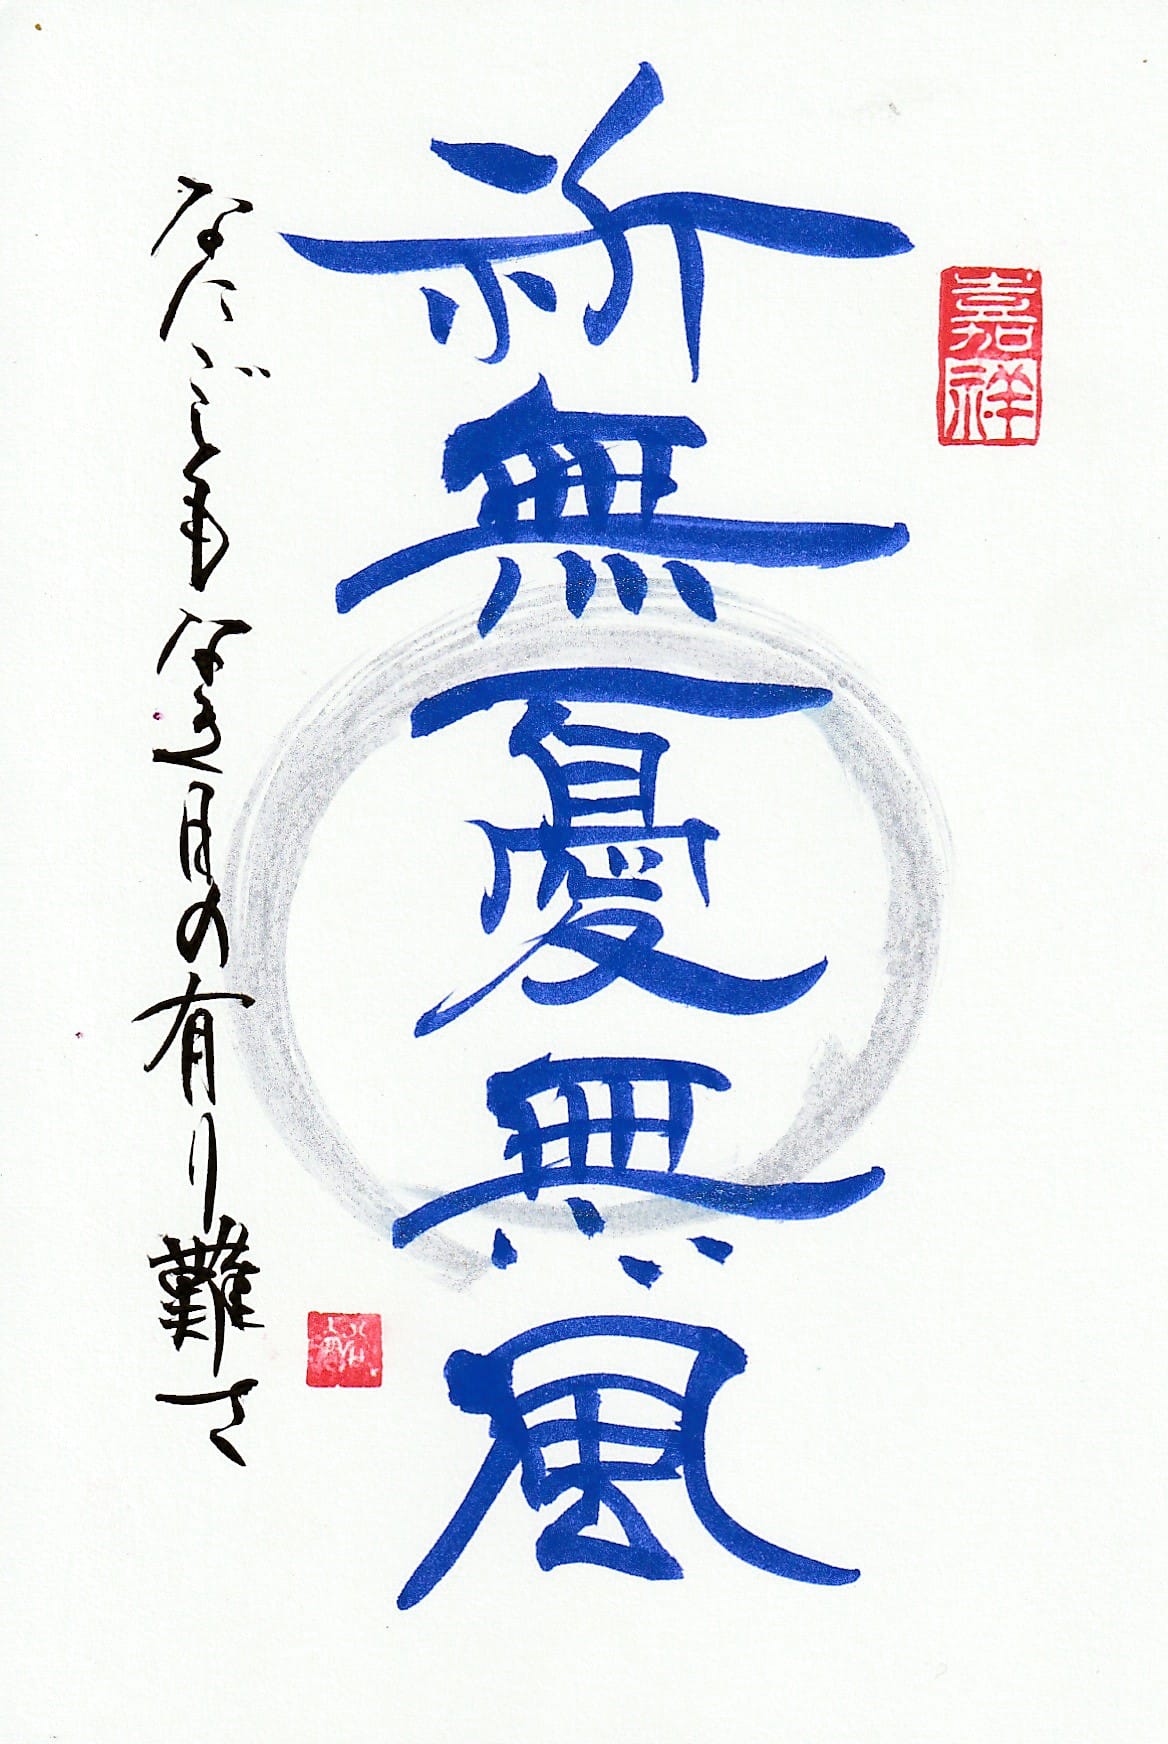 嘉祥
祈無憂無風
なにごともなき月の有り難さ